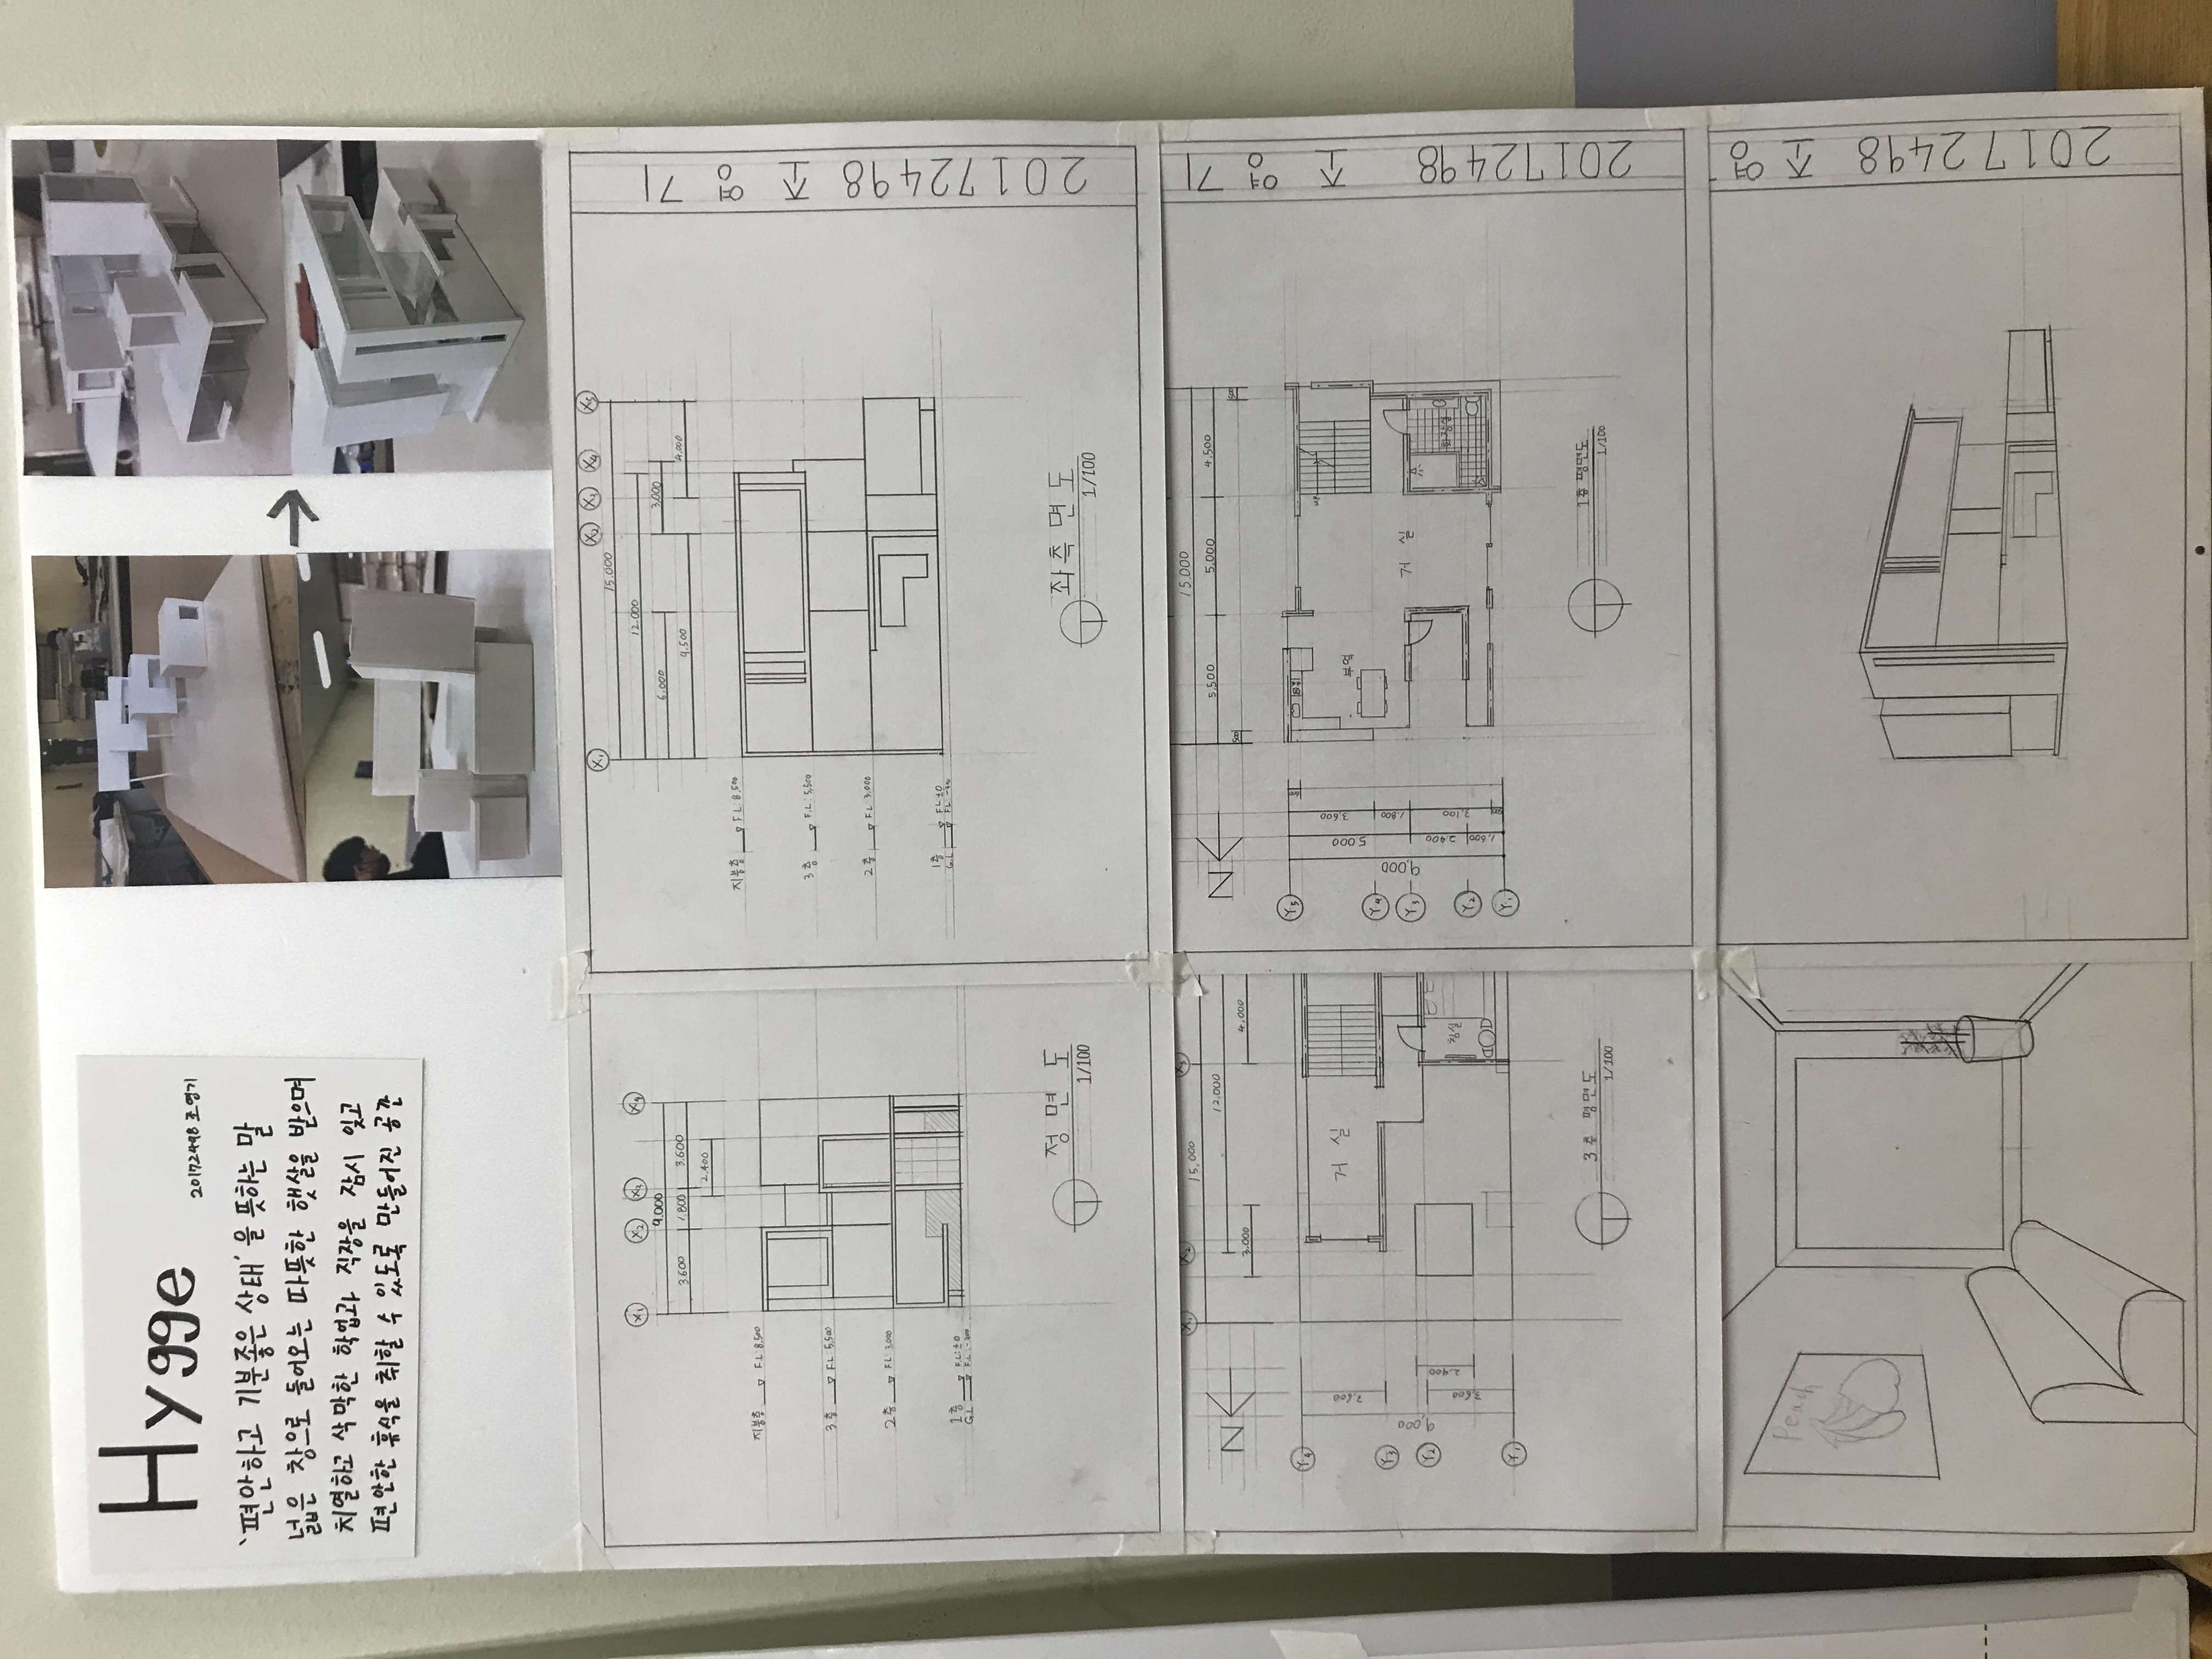 Hygge
20172498 조영기
'편안하고 기분좋은 상태'을 뜻하는 말
넓은 창으로 들어오는 따뜻한 햇살을 받으며
치열하고 삭막한 학업과 직장을 잠시 잊고
편안한 휴식을 취할 수 있도록 만들어진 공간
X1 X2 X3 X4
9.000
3.600 1.800 3.600
2.400
지붕층 F.L:8,500
3층 F.L:5,500
2층 F.L:3,000
1층 F.L:±0
G.L
정면도
1/100
X1 X2 X3 X4 X5
15.000
12.000
6.000 3.000
9.500 4.000
지붕층 F.L:8,500
3층 F.L:5,500
2층 F.L:3,000
1층 F.L±0
G.L
좌측면도
1/100
20172498 조영기
X1 X2 X3
N
15,000
12,000
3.000 4,000
Y4
Y3
Y2
Y1
3,600
9,000
2.400
3,600
거실
침실
3층 평면도
1/100
N
15.000
5,500 5,000 4,500
500 500
Y5
Y4
Y3
Y2
Y1
9,000
5.000 2.400 1,600
3,600 1,800 3,100
부엌
UP
거실
화장실
1층 평면도
1/100
20172498 조영기
Peach
20172498 조영